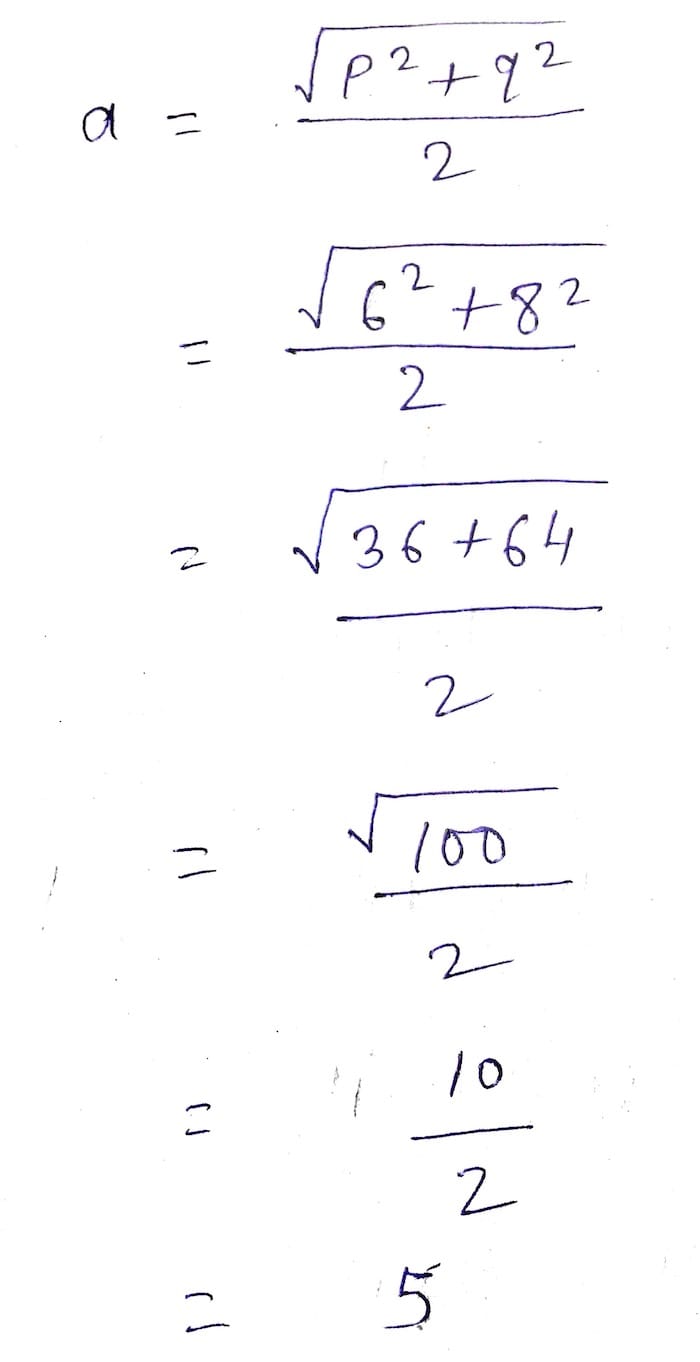 a = √(p²+q²) / 2
= √(6²+8²) / 2
= √(36+64) / 2
= √100 / 2
= 10 / 2
= 5